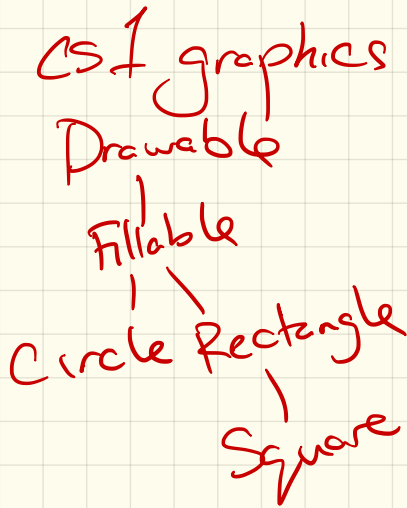 cs1 graphics
Drawable
Fillable
Circle Rectangle
Square